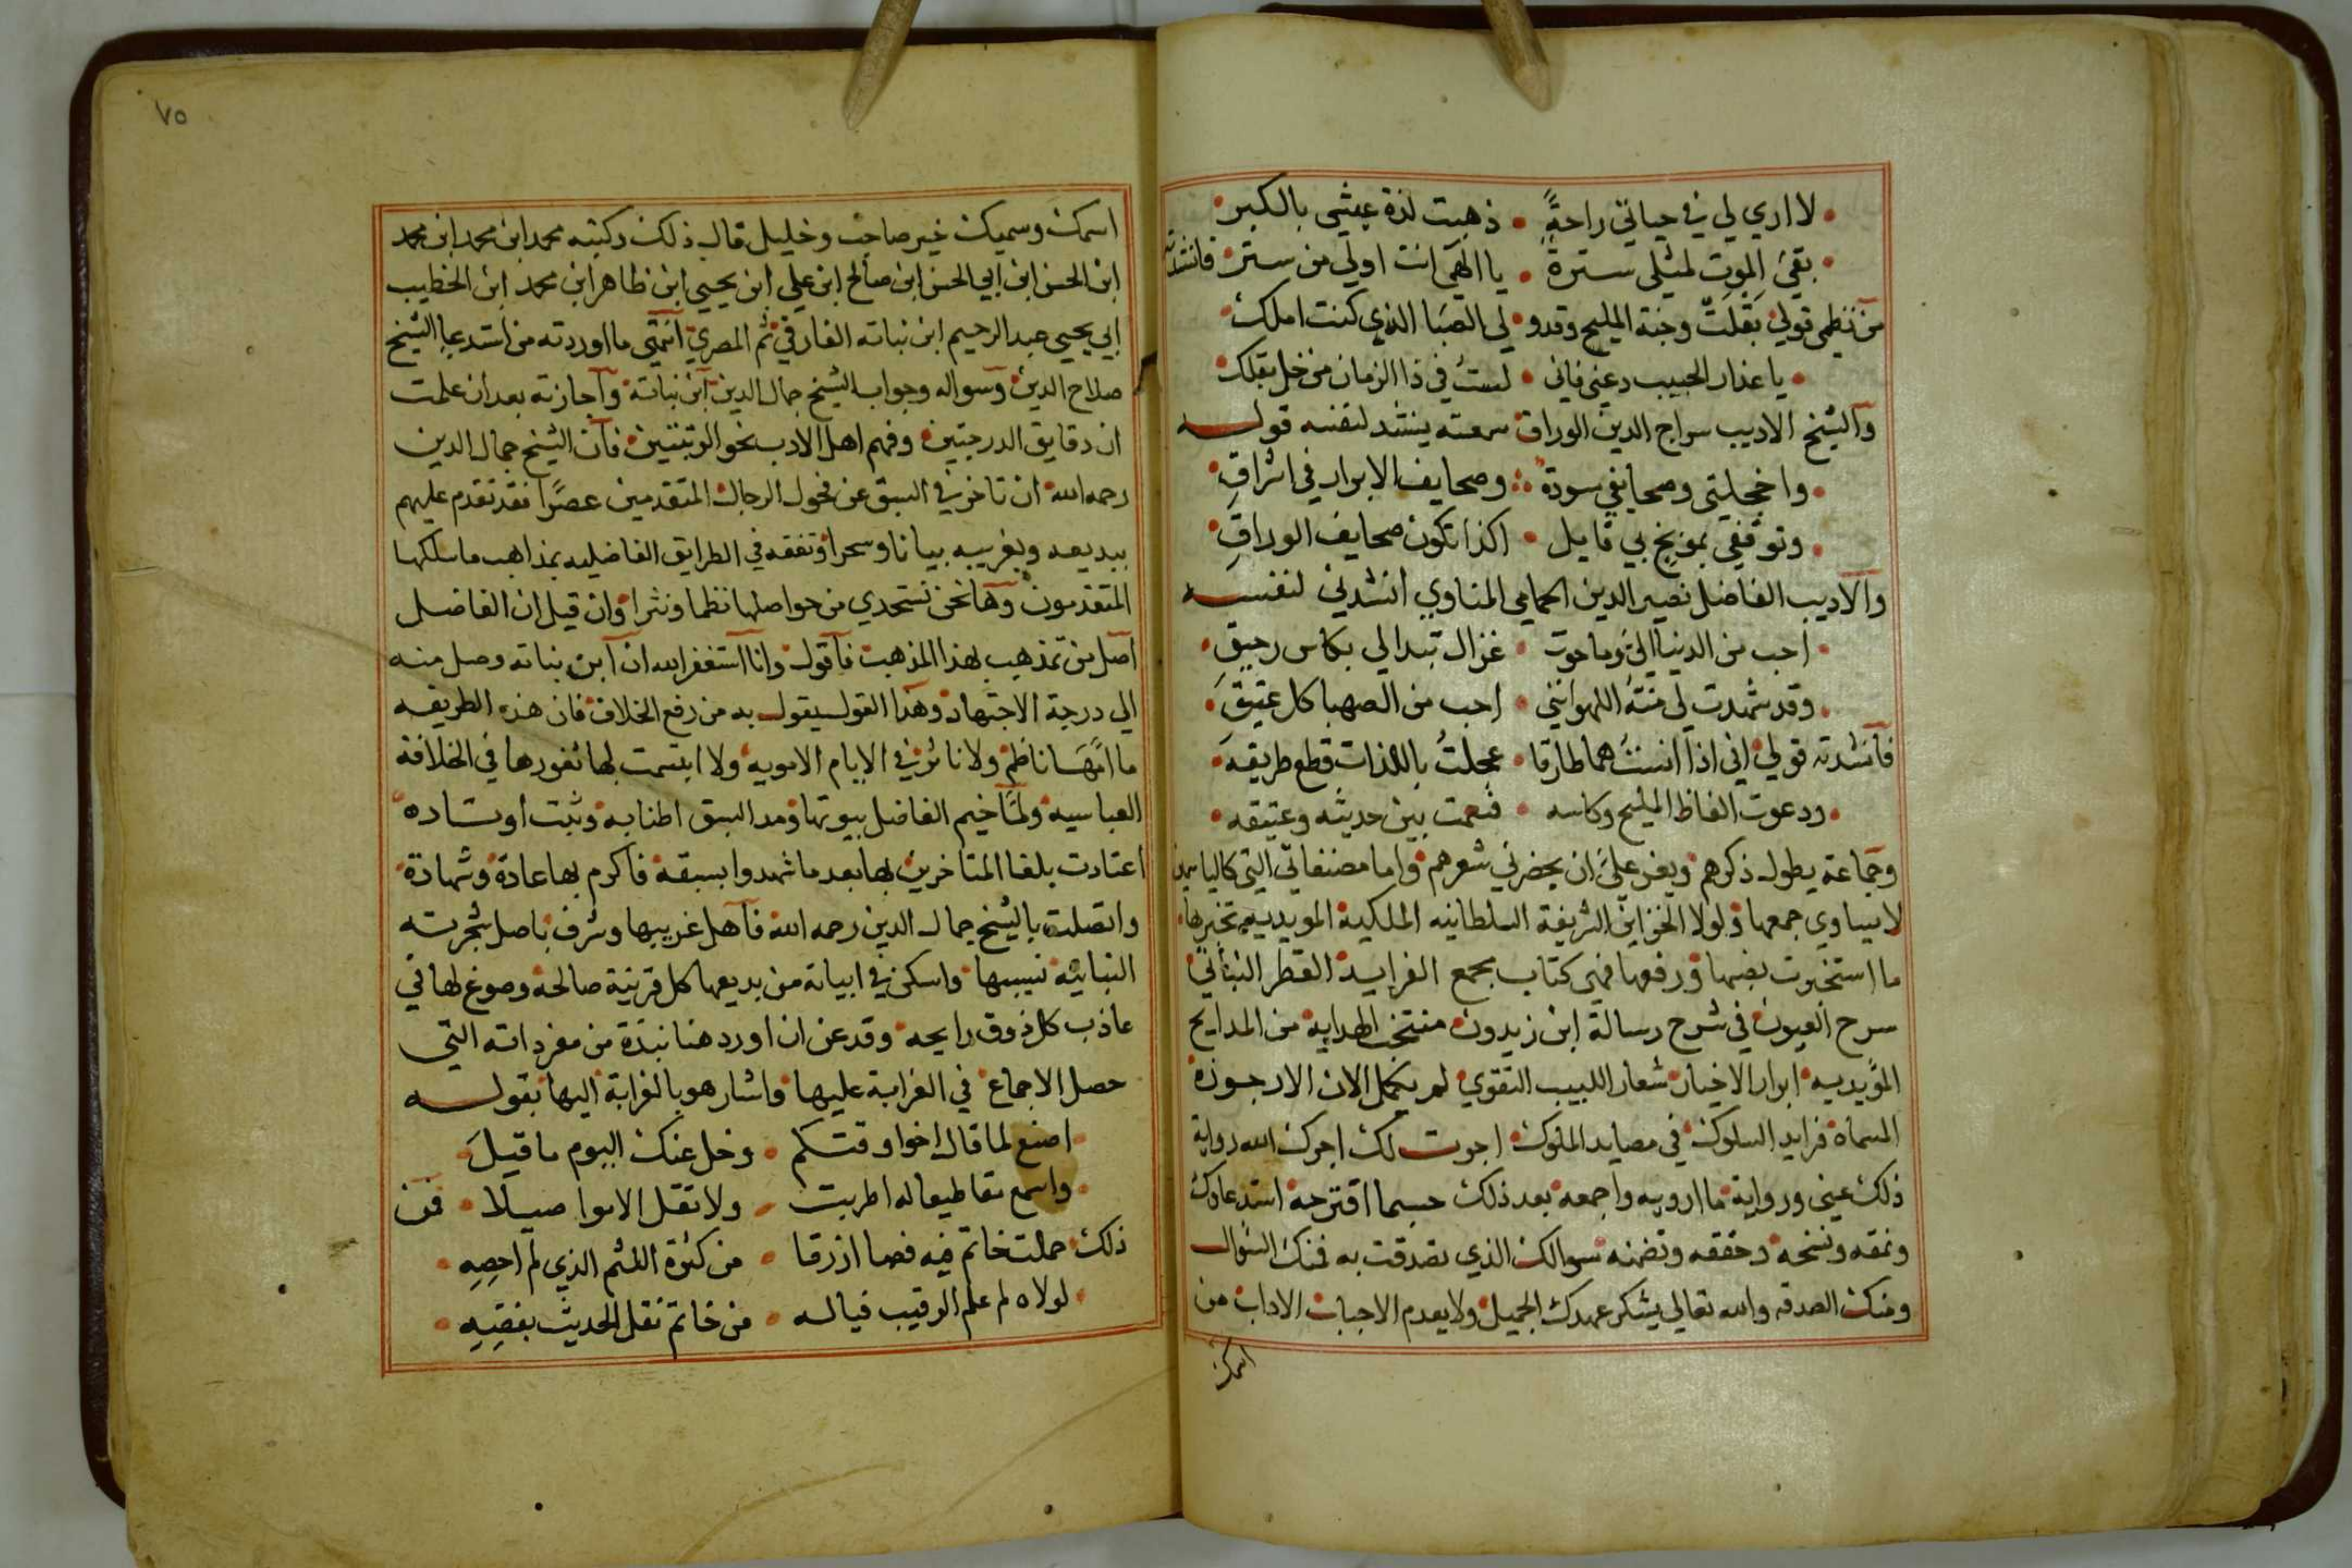 لا اري لي في حياتي راحةً • ذهبت لذة عيشي بالكبر •
بقي الموت لمثلي سترة • يا الهي انت اولي من ستر • فانشدته
من نظمي قولي • بقلت وجنة المليح وقدو • لي الصبا الذي كنت املك •
يا عذار الحبيب دعني فاني • لست في ذا الزمان من خل بقلك •
والشيخ الاديب سراج الدين الوراق سمعته ينشد لنفسه قوله
واخجلتي وصحايفي سودة • وصحايف الابرار في اشراق •
وتوقفي بموبخ بي قايل • اكذا تكون صحايف الوراق •
والاديب الفاضل نصير الدين الحمامي المناوي انشدني لنفسه
احب من الدنيا الي وما حوت • غزال تبدالي بكاس رحيق •
وقد شهدت لي منته اللهوانني • احب من الصهبا كل عتيق •
فانشدته قولي • اني اذا انست هما طارقا • عجلت باللذات قطع طريقه •
ودعوت الفاظ المليح وكاسه • فنعمت بين حديثه وعتيقه •
وجماعة يطول ذكرهم • ويعز علي ان يحضرني شعرهم • واما مصنفاتي التي كالياسمين
لا يساوي جمعها • ولولا الخزاين الشريفة السلطانيه الملكية المويديه تخيرها •
ما استخبرت بضمها • ورفعها فهي كتاب مجمع الفرايد • القطر النباتي •
سرح العيون في شرح رسالة ابن زيدون • منتخب الهداية من المدايح
المؤيديه • ابرار الاخيار • شعار اللبيب التقوي • لم يكمل الان الارجوزة
المسماة فرايد السلوك • في مصايد الملوك • اجوت لك اجرك الله رواية
ذلك عني ورواية ما ارويه واجمعه بعد ذلك حسبما اقترحه استدعاوك
ونمقه ونسخه وحققه وتضمنه سوالك الذي تصدقت به فمنك السؤال
ومنك الصدقه والله تعالي يشكر عهدك الجميل • ولا يعدم الاحباب الاداب من
اسمك
٧٥
اسمك وسميك خير صاحب وخليل قال ذلك وكتبه محمد ابن محمد ابن محمد
ابن الحسن ابن ابي الحسن ابن صالح ابن علي ابن يحيي ابن طاهر ابن محمد ابن الخطيب
ابي يحيي عبد الرحيم ابن نباته الفارقي ثم المصري • انتهي ما اوردته من استدعا الشيخ
صلاح الدين • وسواله وجواب الشيخ جمال الدين ابن نباتة • واجازته بعد ان علمت
ان دقايق الدرجتين • وفهم اهل الادب نحو الرتبتين • فان الشيخ جمال الدين
رحمه الله • ان تاخر في السبق عن فحول الرجال • المتقدمين عصرًا فقد تقدم عليهم
ببديعه وبغريبه بيانا وسحرا وتفقه في الطرايق الفاضليه بمذاهب ما سلكها
المتقدمون • وها نحن نستجدي من حواصلها نظما ونثرا • وان قيل ان الفاضل
اصل من تمذهب بهذا المذهب • فاقول • وانا استغفر الله ان ابن نباته وصل منه
الي درجة الاجتهاد • وهذا القول يقول به من رفع الخلاف • فان هذه الطريقه
ما امها ناظم ولا ناثر في الايام الامويه • ولا ابتسمت لها ثغورها في الخلافة
العباسيه • ولما خيم الفاضل ببيوتها • ومد السبق اطنابه • وثبت اوتاده •
اعتادت بلقا المتاخرين بها بعد ما شهدوا بسبقه • فاكرم بها عادة • وشهادة •
واتصلت بالشيخ جمال الدين رحمه الله • فاهل غريبها وشرف باصل شجرته
النباتيه نسيبها • واسكن في ابياته من بديعها كل قرينة صالحة • وصوغ لها في
عاذب كل ذوق رايحه • وقد عن ان اورد هنا نبذة من مفرداته التي
حصل الاجماع • في الغرابة عليها • واشار هو بالغرابة اليها • بقوله
اصنع لما قال اخوا وقتكم • وخل عنك اليوم ما قيل •
واسمع تقاطيعا له اطربت • ولا تقل الا موا صيلا • فمن
ذلك • حملت خاتم فيه فصا ازرقا • من كثرة اللثم الذي لم احصه •
لولاه لم علم الرقيب فياله • من خاتم نقل الحديث بفصه •